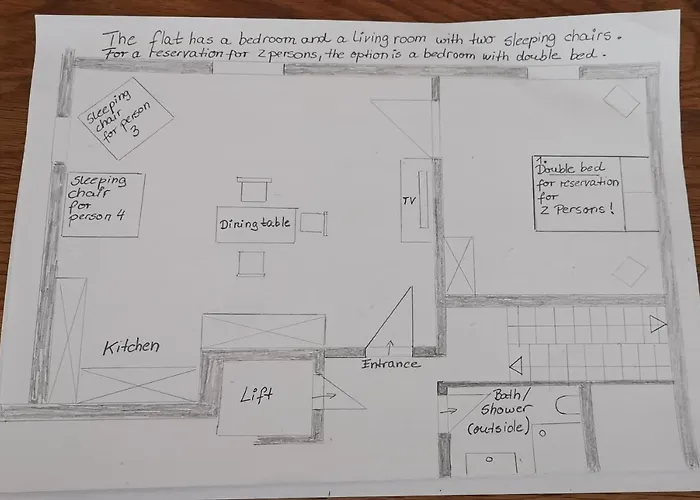 The flat has a bedroom and a living room with two sleeping chairs.
For a reservation for 2 persons, the option is a bedroom with double bed.
Sleeping
chair
for person
3
Sleeping
chair
for
person 4
Dining table
TV
1. Double bed
for reservation
for
2 Persons!
Kitchen
Lift
Entrance
Bath/
Shower
(outside)